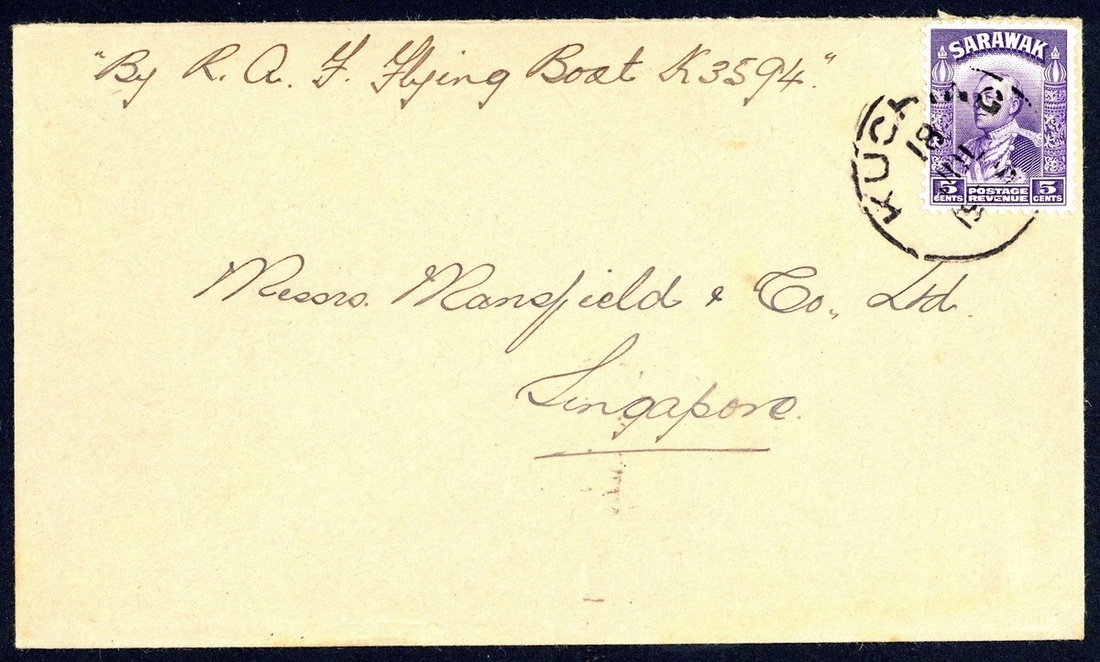 "By R. A. F. Flying Boat K3594."
SARAWAK
KUCH
18
5 CENTS POSTAGE REVENUE 5 CENTS
Messrs. Mansfield & Co., Ltd.
Singapore.